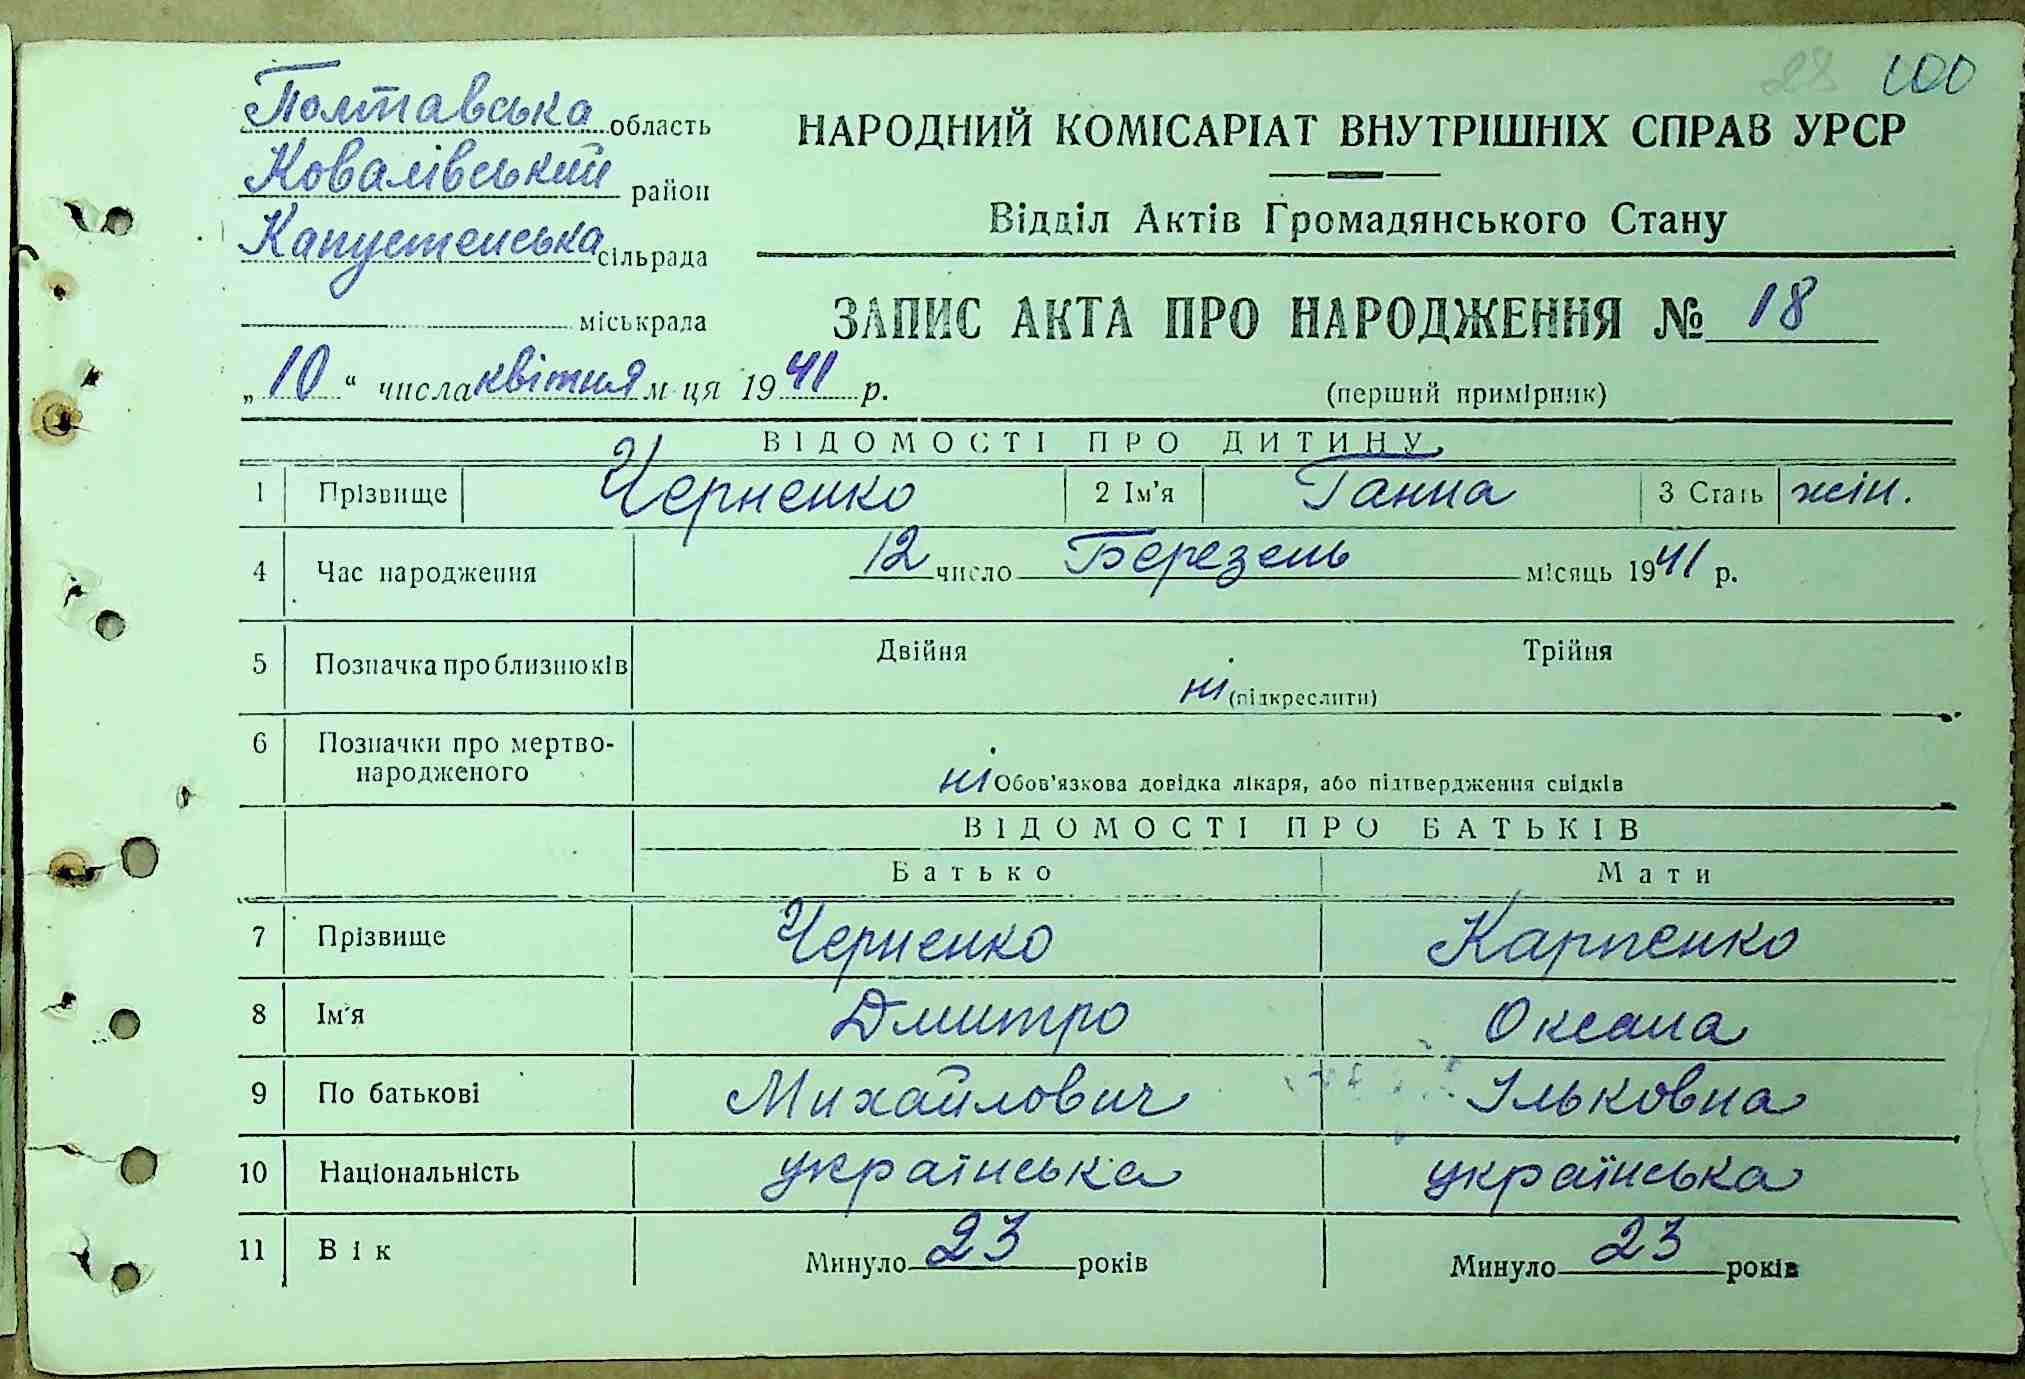 28 100
Полтавська область
Ковалівський район
Капустенська сільрада
міськрада
„10“ числа квітня м-ця 1941 р.
НАРОДНИЙ КОМІСАРІАТ ВНУТРІШНІХ СПРАВ УРСР
Відділ Актів Громадянського Стану
ЗАПИС АКТА ПРО НАРОДЖЕННЯ № 18
(перший примірник)
ВІДОМОСТІ ПРО ДИТИНУ
1 Прізвище Черненко 2 Ім'я Ганна 3 Стать жін.
4 Час народження 12 число Березень місяць 1941 р.
5 Позначка про близнюків Двійня Трійня
ні (підкреслити)
6 Позначки про мертво-
народженого ні Обов'язкова довідка лікаря, або підтвердження свідків
ВІДОМОСТІ ПРО БАТЬКІВ
Батько Мати
7 Прізвище Черненко Карпенко
8 Ім'я Дмитро Оксана
9 По батькові Михайлович Ільковна
10 Національність українська українська
11 Вік Минуло 23 років Минуло 23 років